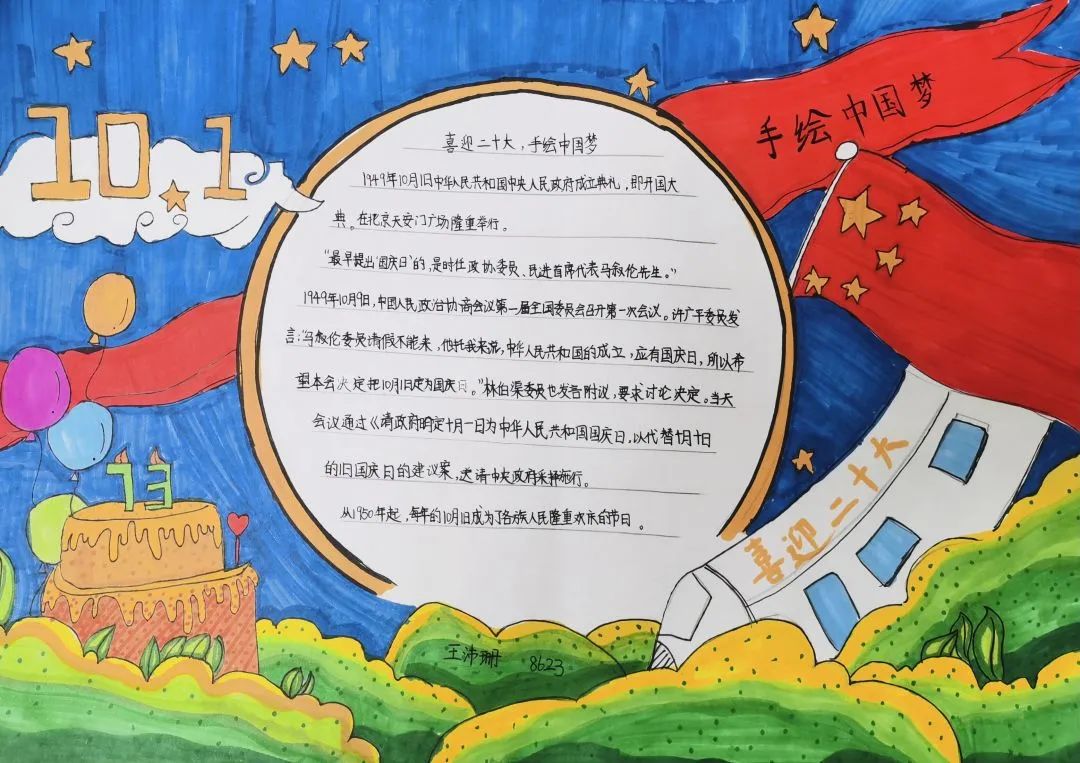 10.1
手绘中国梦
喜迎二十大，手绘中国梦
1949年10月1日中华人民共和国中央人民政府成立典礼，即开国大
典。在北京天安门广场隆重举行。
“最早提出‘国庆日’的，是时任政协委员、民进首席代表马叙伦先生。”
1949年10月9日，中国人民政治协商会议第一届全国委员会召开第一次会议。许广平委员发
言：“马叙伦委员请假不能来，他托我来说，中华人民共和国的成立，应有国庆日，所以希
望本会决定把10月1日定为国庆日。”林伯渠委员也发言附议，要求讨论决定。当天
会议通过《请政府明定十月一日为中华人民共和国国庆日，以代替十月十日
的旧国庆日的建议案，送请中央政府采择施行。
从1950年起，每年的10月1日成为了各族人民隆重欢庆的节日。
73
喜迎二十大
王沛珊 8623